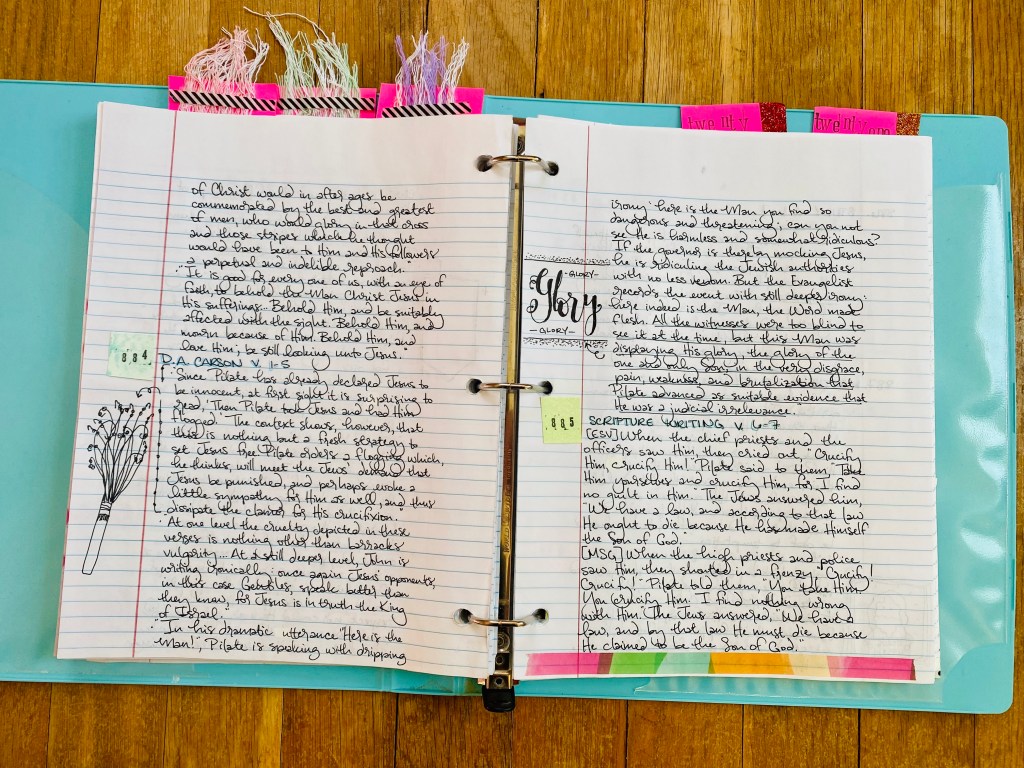 twenty
twentyone
of Christ would in after ages be
commemorated by the best and greatest
of men, who would glory in that cross
and those stripes which he thought
would have been to Him and His followers
a perpetual and indelible reproach."
"It is good for every one of us, with an eye of
faith, to behold the Man Christ Jesus in
His sufferings... Behold Him, and be suitably
affected with the sight. Behold Him, and
mourn because of Him. Behold Him, and
love Him; be still looking unto Jesus."
884
D.A. CARSON V. 1-5
"Since Pilate has already declared Jesus to
be innocent, at first sight it is surprising to
read, 'Then Pilate took Jesus and had Him
flogged'. The context shows, however, that
this is nothing but a fresh strategy to
set Jesus free: Pilate orders a flogging which,
he thinks, will meet the Jews' demand that
Jesus be punished, and perhaps evoke a
little sympathy for Him as well, and thus
dissipate the clamor for His crucifixion."
"At one level the cruelty depicted in these
verses is nothing other than barracks
vulgarity... At a still deeper level, John is
writing ironically: once again Jesus' opponents,
in this case Gentiles, speak better than
they know, for Jesus is in truth the King
of Israel."
"In his dramatic utterance 'Here is the
Man!', Pilate is speaking with dripping
irony: here is the Man you find so
dangerous and threatening; can you not
see He is harmless and somewhat ridiculous?
If the governor is thereby mocking Jesus,
he is ridiculing the Jewish authorities
with no less venom. But the Evangelist
records the event with still deeper irony:
here indeed is the Man, the Word made
flesh. All the witnesses were too blind to
see it at the time, but this Man was
displaying His glory, the glory of the
one and only Son, in the very disgrace,
pain, weakness, and brutalization that
Pilate advanced as suitable evidence that
He was a judicial irrelevance.
-GLORY-
Glory
-GLORY-
885
SCRIPTURE WRITING V. 6-7
[ESV] When the chief priests and the
officers saw Him, they cried out, "Crucify
Him, crucify Him!" Pilate said to them, "Take
Him yourselves and crucify Him, for I find
no guilt in Him." The Jews answered him,
"We have a law, and according to that law
He ought to die because He has made Himself
the Son of God."
[MSG] When the high priests and police
saw Him, they shouted in a frenzy, "Crucify!
Crucify!" Pilate told them, "You take Him.
You crucify Him. I find nothing wrong
with Him." The Jews answered, "We have a
law, and by that law He must die because
He claimed to be the Son of God."